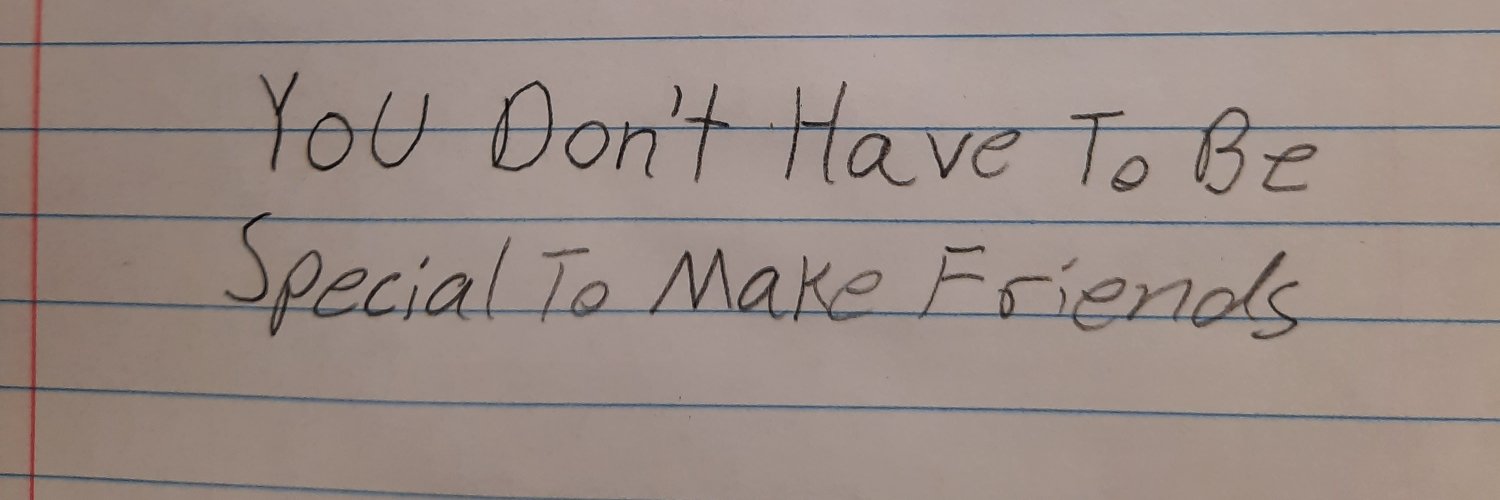 You Don't Have To Be
Special To Make Friends